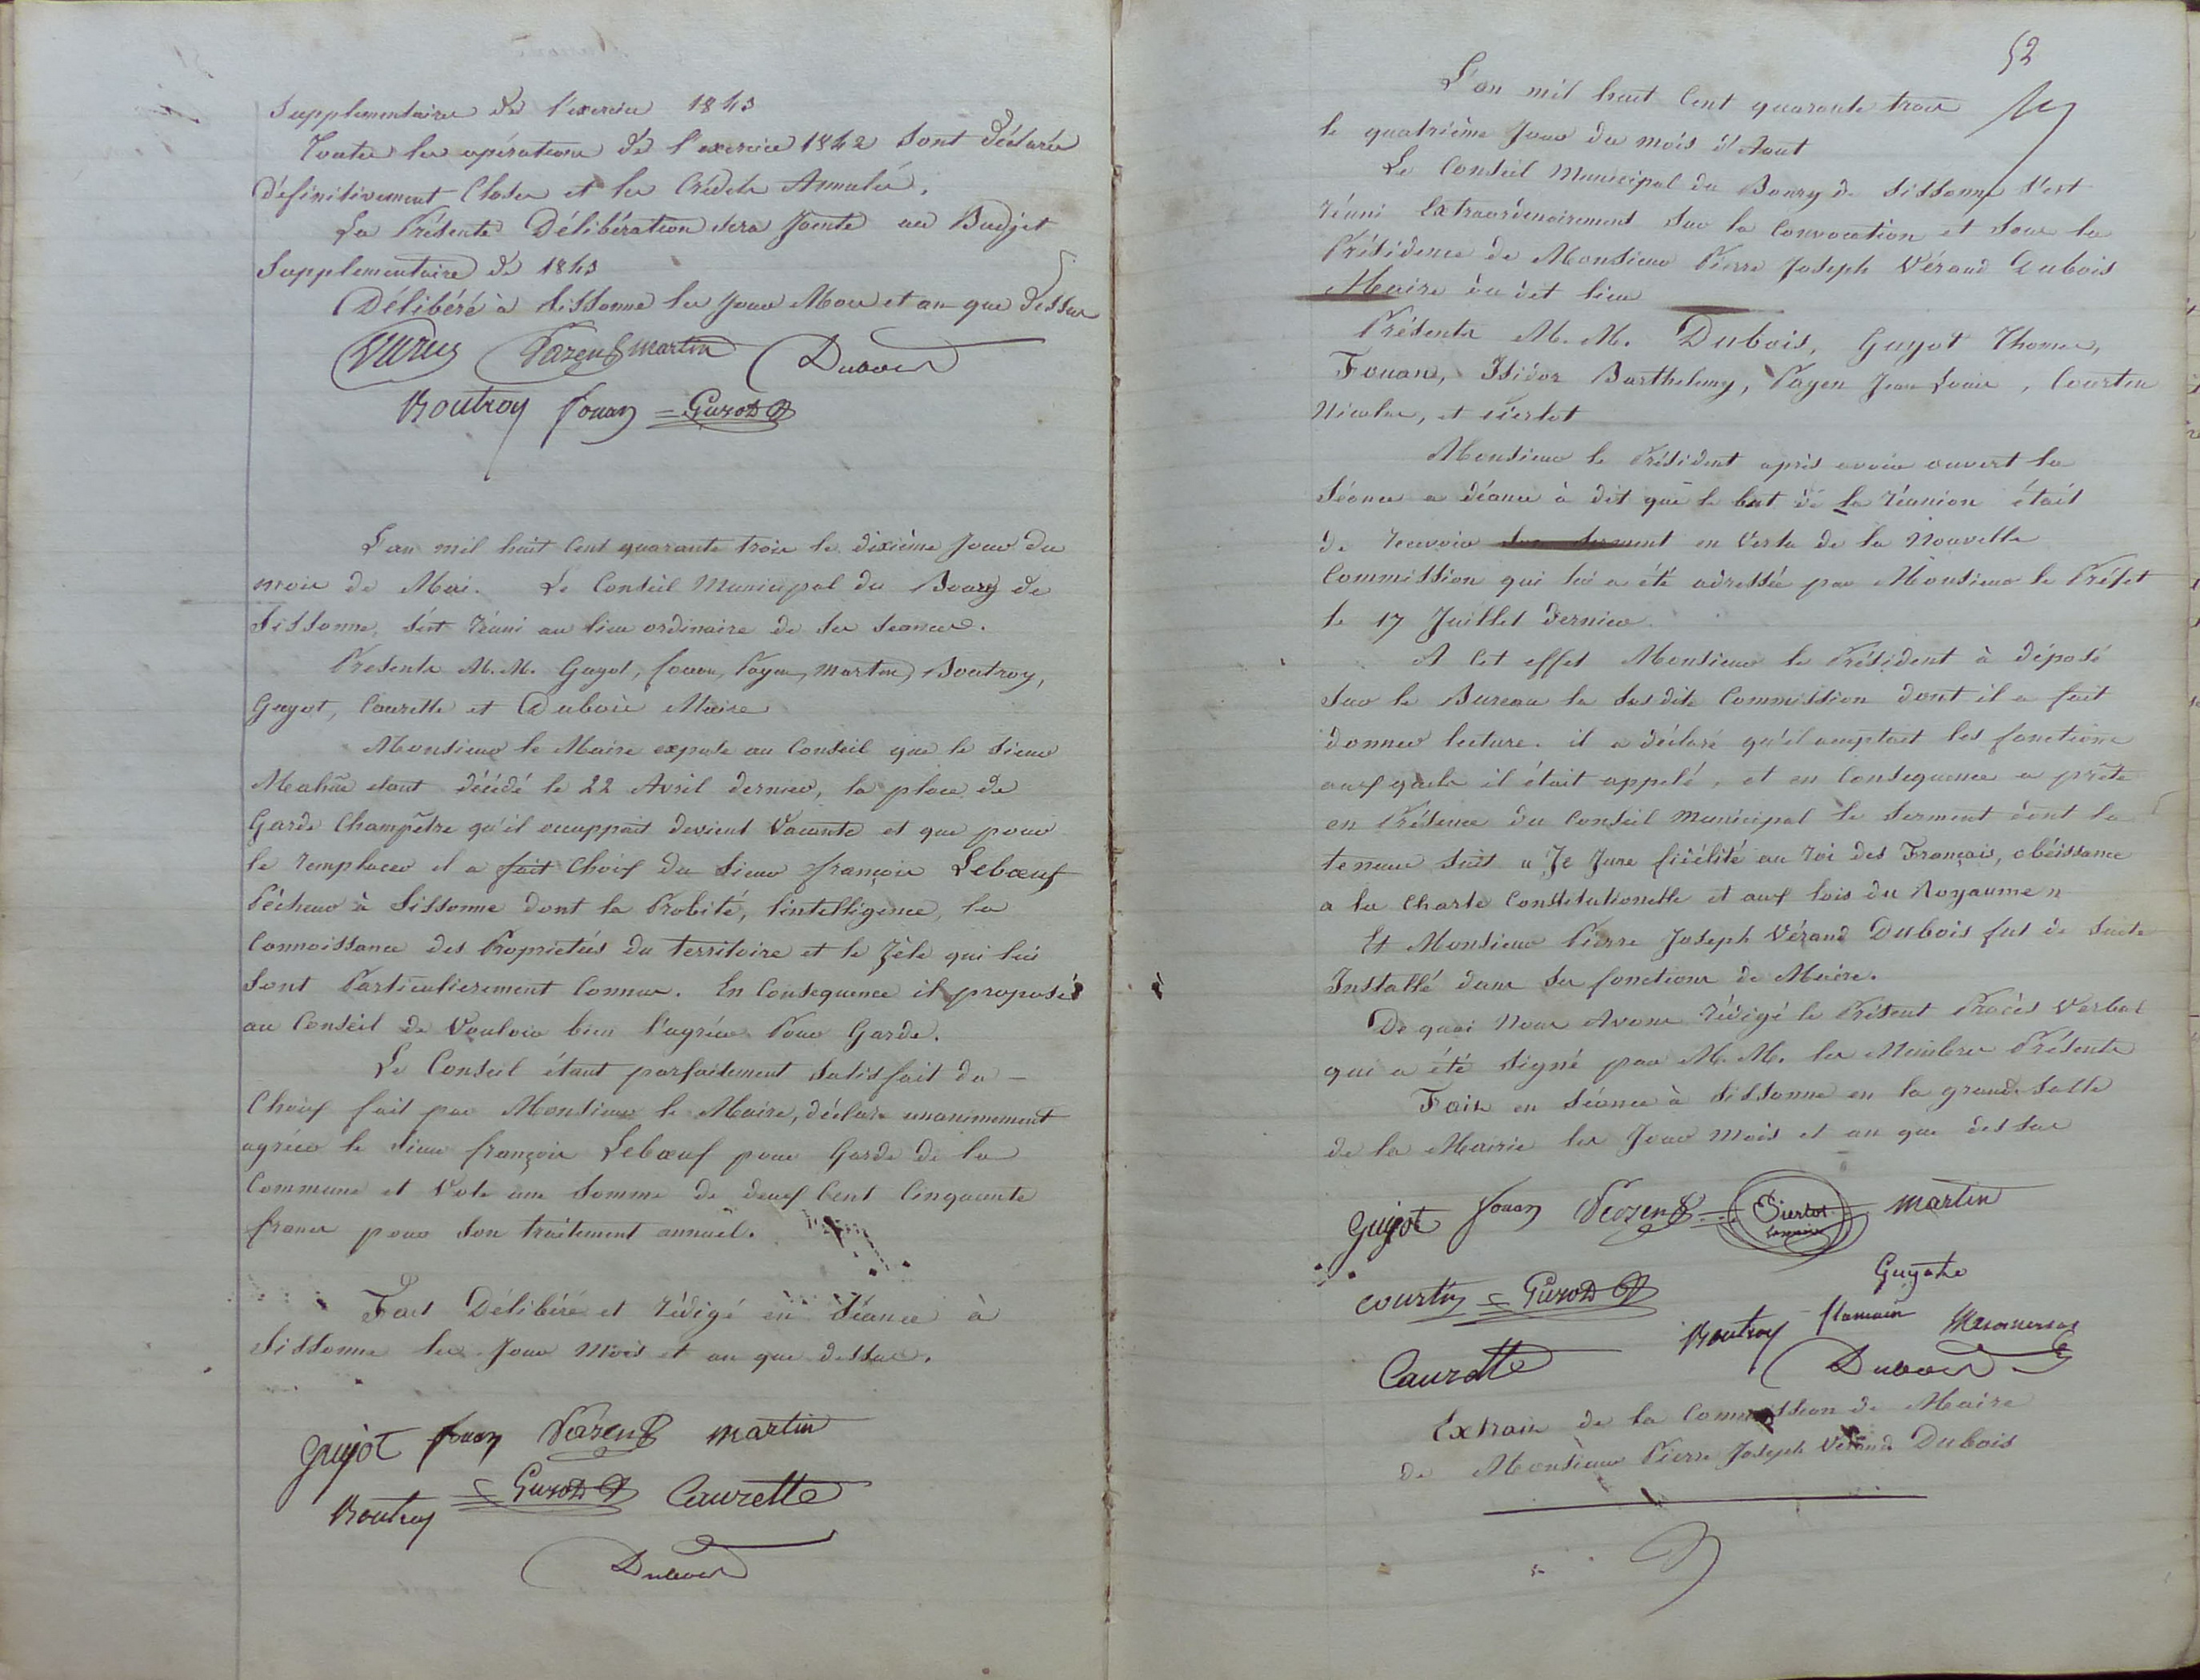 Supplementaire de l'exercice 1843
Toutes les opérations de l'exercice 1842 sont déclarées
définitivement Closes et les Crédits Annulés.
La Présente Délibération sera Jointe au Budjet
Supplementaire de 1843
Délibéré à Sissonne les Jour Mois et an que dessus
Payen martin Dubois
Boutroy fouan Guyot
L'an mil huit Cent quarante trois le dixième Jour du
mois de Mai. Le Conseil Municipal du Bourg de
Sissonne, s'est réuni au lieu ordinaire de ses séances.
Présents M.M. Guyot, fouan, Payen, Martin, Boutroy,
Guyot, Courette et Dubois Maire
Monsieur le Maire expose au Conseil que le Sieur
étant décédé le 22 Avril dernier, la place de
Garde Champêtre qu'il occuppait devient Vacante et que pour
le remplacer il a fait Choix du Sieur françois Lebœuf
Pêcheur à Sissonne dont la Probité, l'intelligence, la
Connoissance des Proprietés du territoire et le Zèle qui lui
sont Particulierement Connus. En Consequence il propose
au Conseil de Vouloir bien l'agréer Pour Garde.
Le Conseil étant parfaitement satisfait du
Choix fait par Monsieur le Maire, déclare unanimement
agréer le Sieur françois Lebœuf pour Garde de la
Commune et Vote une Somme de deux Cent Cinquante
francs pour Son traitement annuel.
Fait Délibéré et rédigé en Séance à
Sissonne les Jour Mois et an que dessus.
Guyot fouan Payen martin
Boutroy Guyot Caurette
Dubois
52
L'an mil huit Cent quarante trois
le quatrième Jour du mois d'Aout
Le Conseil Municipal du Bourg de Sissonne s'est
réuni Extraordinairement Sur la Convocation et Sous la
Présidence de Monsieur Pierre Joseph Vérand Dubois
Maire du dit lieu
Présents M.M. Dubois, Guyot Thomas,
Fouan, Isidor Barthelemy, Payen Jean Louis, Courtin
Nicolas, et Sierlot
Monsieur le Président après avoir ouvert la
Séance a déance à dit que le but de la réunion était
de recevoir son serment en Vertu de la Nouvelle
Commission qui lui a été adressée par Monsieur le Préfet
le 17 Juillet dernier.
A Cet effet Monsieur le Président à déposé
Sur le Bureau la Sus dite Commission dont il a fait
donner lecture. il a déclaré qu'il acceptait les fonctions
auxquels il était appelé, et en Consequence a prêté
en Présence du Conseil Municipal le Serment dont la
teneur Suit « Je Jure fidélité au roi des Français, obéissance
a la Charte Constitutionelle et aux lois du Royaume »
Et Monsieur Pierre Joseph Vérand Dubois fut de Suite
Installé dans Ses fonctions de Maire.
De quoi Nous Avons rédigé le Présent Procès Verbal
qui a été Signé par M.M. les Membres Présents
Fait en Séance à Sissonne en la grande Salle
de la Mairie les Jour Mois et an que dessus
Guyot fouan Payen Sierlot martin
courtin Guyot
Boutroy
Caurette Dubois
Extrait de la Commission de Maire
de Monsieur Pierre Joseph Vérand Dubois